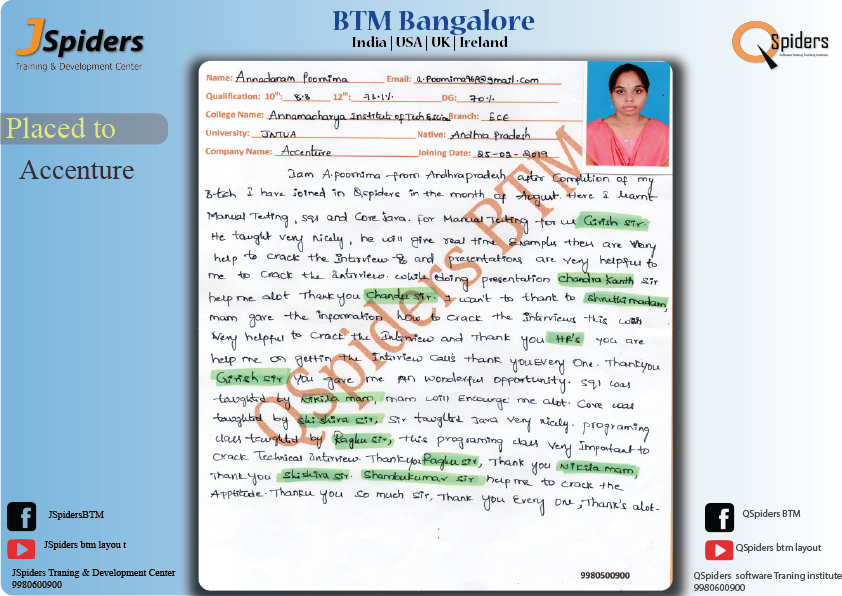 JSpiders
Training & Development Center
BTM Bangalore
India | USA | UK | Ireland
QSpiders
Software Testing Training Institute
Placed to
Accenture
Name: Annadaram Poornima Email: a.poornima969@gmail.com
Qualification: 10th: 8.8 12th: 73.1% DG: 70%
College Name: Annamacharya Institute of Tech & Science Branch: ECE
University: JNTUA Native: Andhra Pradesh
Company Name: Accenture Joining Date: 25-02-2019
Iam A.poornima from Andhrapradesh after Completion of my
Btch I have joined in Qspiders in the month of August. Here I learnt
Manual Testing, sql and Core Java. for Manual Testing for us Girish sir
He taught very nicely, he will give real time Examples then are very
help to crack the Interview & and presentations are very helpful to
me to crack the Interview. while doing presentation Chandra Kanth sir
help me alot Thank you Chandu sir. I want to thank to Shruthi madam,
mam gave the information how to crack the Interviews this will
very helpful to crack the Interview and Thank you HR's you are
help me on gettin the Interview calls thank you Every One. Thank you
Girish sir you gave me an wonderful opportunity. sql was
taughted by Nikila mam, mam will Encourge me alot. Core was
taughted by Shishira sir, Sir taughted Java very nicely. programing
class taughted by Raghu sir, this programing class very Important to
Crack Technical Interview. Thank you Raghu sir, Thank you Nikila mam,
Thank you Shishira sir. Shambukumar sir help me to crack the
Apptitude. Thanku you so much sir, Thank you Every One, Thank's alot.
QSpiders BTM
9980500900
JSpidersBTM
JSpiders btm layou t
JSpiders Traning & Development Center
9980600900
QSpiders BTM
QSpiders btm layout
QSpiders software Traning institute
9980600900